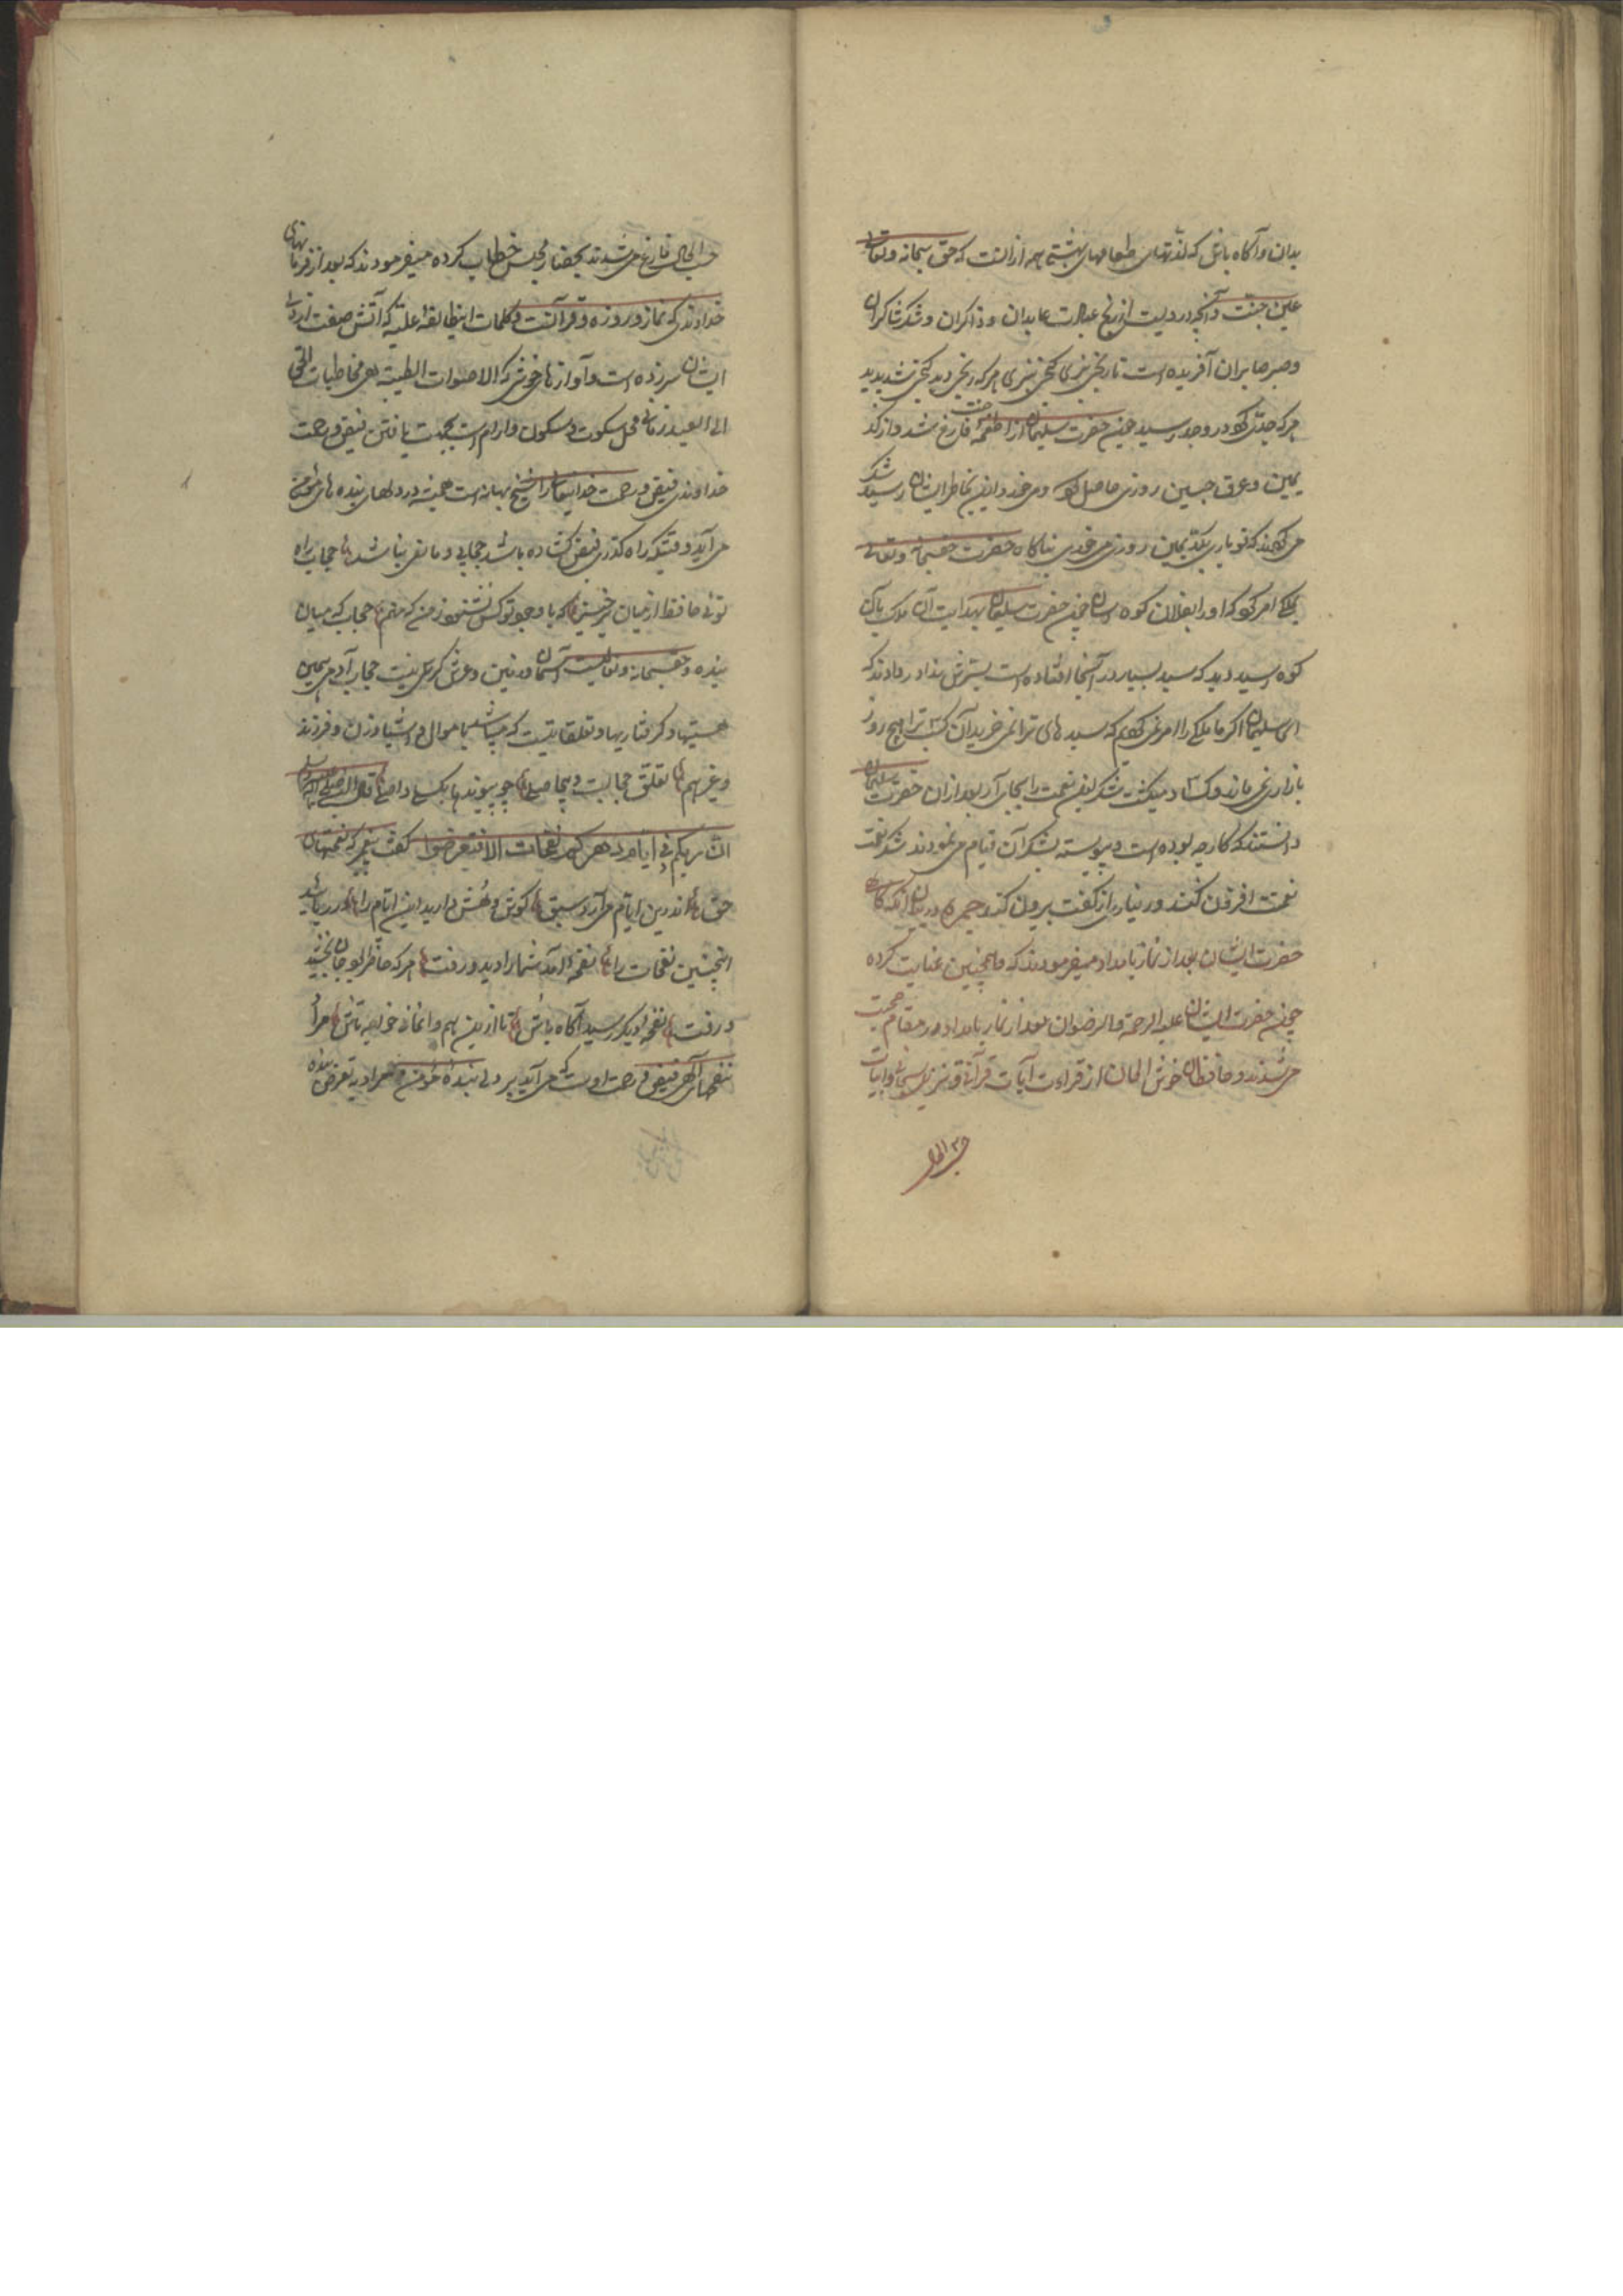 بدان و آگاه باش که لذتهای طعامهای بهشتی همه از آنست که حق سبحانه و تعالی
عین جنت و آنچه درویست از رنج عبادت عابدان و ذاکران و شکر شاکران
و صبر صابران آفریده است تا رنجی نبری گنجی نبری هر که رنجی دید گنجی شد پدید
هر که جدی کرد در جد رسید چون حضرت سلیمان از اطعمه جنت فارغ شد و از کد
یمین و عرق جبین روزی حاصل کرد و می خورد این بخاطر ایشان رسید شکر
می کردند که تو باری بکد یمین روزی می خوری ناگاه حضرت حق سبحانه و تعالی
ملکی امر کرد که او را بفلان کوه رسان چون حضرت سلیمان بهدایت آن ملک بآن
کوه رسید دید که سبد بسیار در آنجا افتاده است بسرش ندا در دادند که
ای سلیمان اگر ما ملکی را امر نمی کردیم که سبدهای ترا نمی خرید آن کسب ترا هیچ روز
بازاری نمی ماند و کساد میگشت شکر این نعمت را بجای آر بعد از آن حضرت سلیمان
دانستند که کار چه بوده است و پیوسته بشکر آن قیام می نمودند شکر نعمت
نعمت افزون کند ور نیاری از کفت بیرون کند در بیان آنکه گاه
حضرت ایشان بعد از نماز بامداد میفرمودند که ما همچنین عنایت کرده
چون حضرت ایشان علیه الرحمة والرضوان بعد از نماز بامداد در مقام صحبت
می شدند و حافظان خوش الحان از قراءت آیات قرآنی و ابیات
حسب الحال
حسب الحال فارغ می شدند بحضار مجلس خطاب کرده میفرمودند که بعد از فرمانهای
خداوندی که نماز و روزه و قرآنست و کلمات این طایفه علیه که آتش صفت از دل
ایشان سر زده است و آوازهای خوش که الاصوات الطیبة هی مخاطبات الحق
الی العبد زمانی محل سکوت و سکون و آرام است بجهت یافتن فیض و رحمت
خداوندی فیض و رحمت خدایتعالی را هیچ بهانه است همیشه در دلهای بنده های مؤمن
می آید وقتیکه راه گذر فیض گشاده باشد حجابی و مانعی نباشد حجاب راه
توئی حافظ از میان برخیز که با وجود تو کس نشنود ز من که منم حجاب که میان
بنده و حق سبحانه و تعالیست آسمان و زمین و عرش و کرسی نیست حجاب آدمی همین
هستیها و گرفتاریها و تعلقاتیست که باموال و اشیا و زن و فرزند
و غیرهم تعلق حجابست و بیحاصلی چو پیوندها بگسلی واصلی قال النبی صلی الله علیه وسلم
ان لربکم فی ایام دهرکم نفحات الا فتعرضوا گفت پیغمبر که نفحتهای
حق اندرین ایام می آرد سبق گوش و هش دارید این ایام را در ربایید
اینچنین نفحات را نفحه آمد شما را دید و رفت هر که خواست او جان بخشید
و رفت نفحه دیگر رسید آگاه باش تا ازین هم وا نمانی خواجه تاش مراد
نفحهای الهی فیض و رحمت اوست که می آید بر دل بنده مؤمن و مراد به تعرض بنده